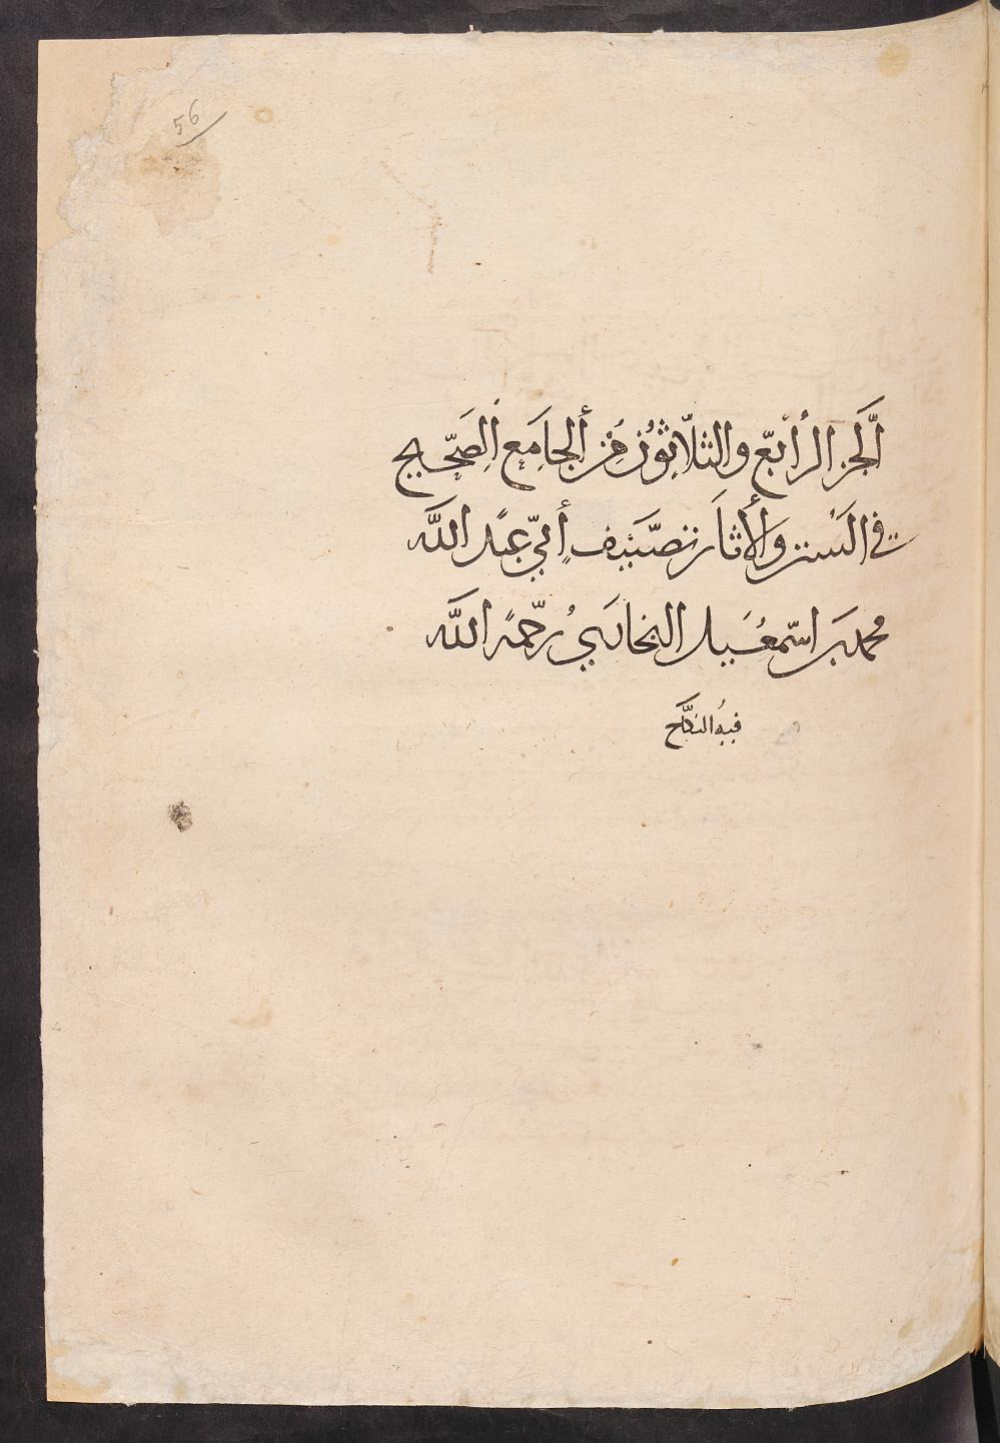 56
الجز الرابع والثلاثون من الجامع الصحيح
في السنن والأثار تصنيف أبي عبد الله
محمد بن اسمعيل البخاري رحمه الله
فيه النكاح